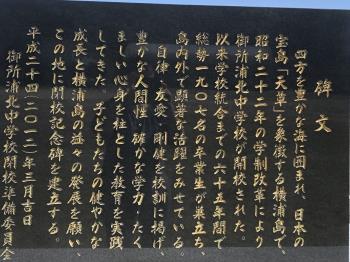 碑文
四方を豊かな海に囲まれ、日本の
宝島「天草」を象徴する横浦島で、
昭和二十二年の学制改革により
御所浦北中学校が開校された。
以来学校統合までの六十五年間で
総勢一九〇七名の卒業生が巣立ち、
島内外で顕著な活躍をみせている。
自律・友愛・剛健を校訓に掲げ、
豊かな人間性・確かな学力・たく
ましい心身を柱とした教育を実践
してきた。子どもたちの健やかな
成長と横浦島の益々の発展を願い、
この地に閉校記念碑を建立する。
平成二十四(二〇一二)年三月吉日
御所浦北中学校閉校準備委員会